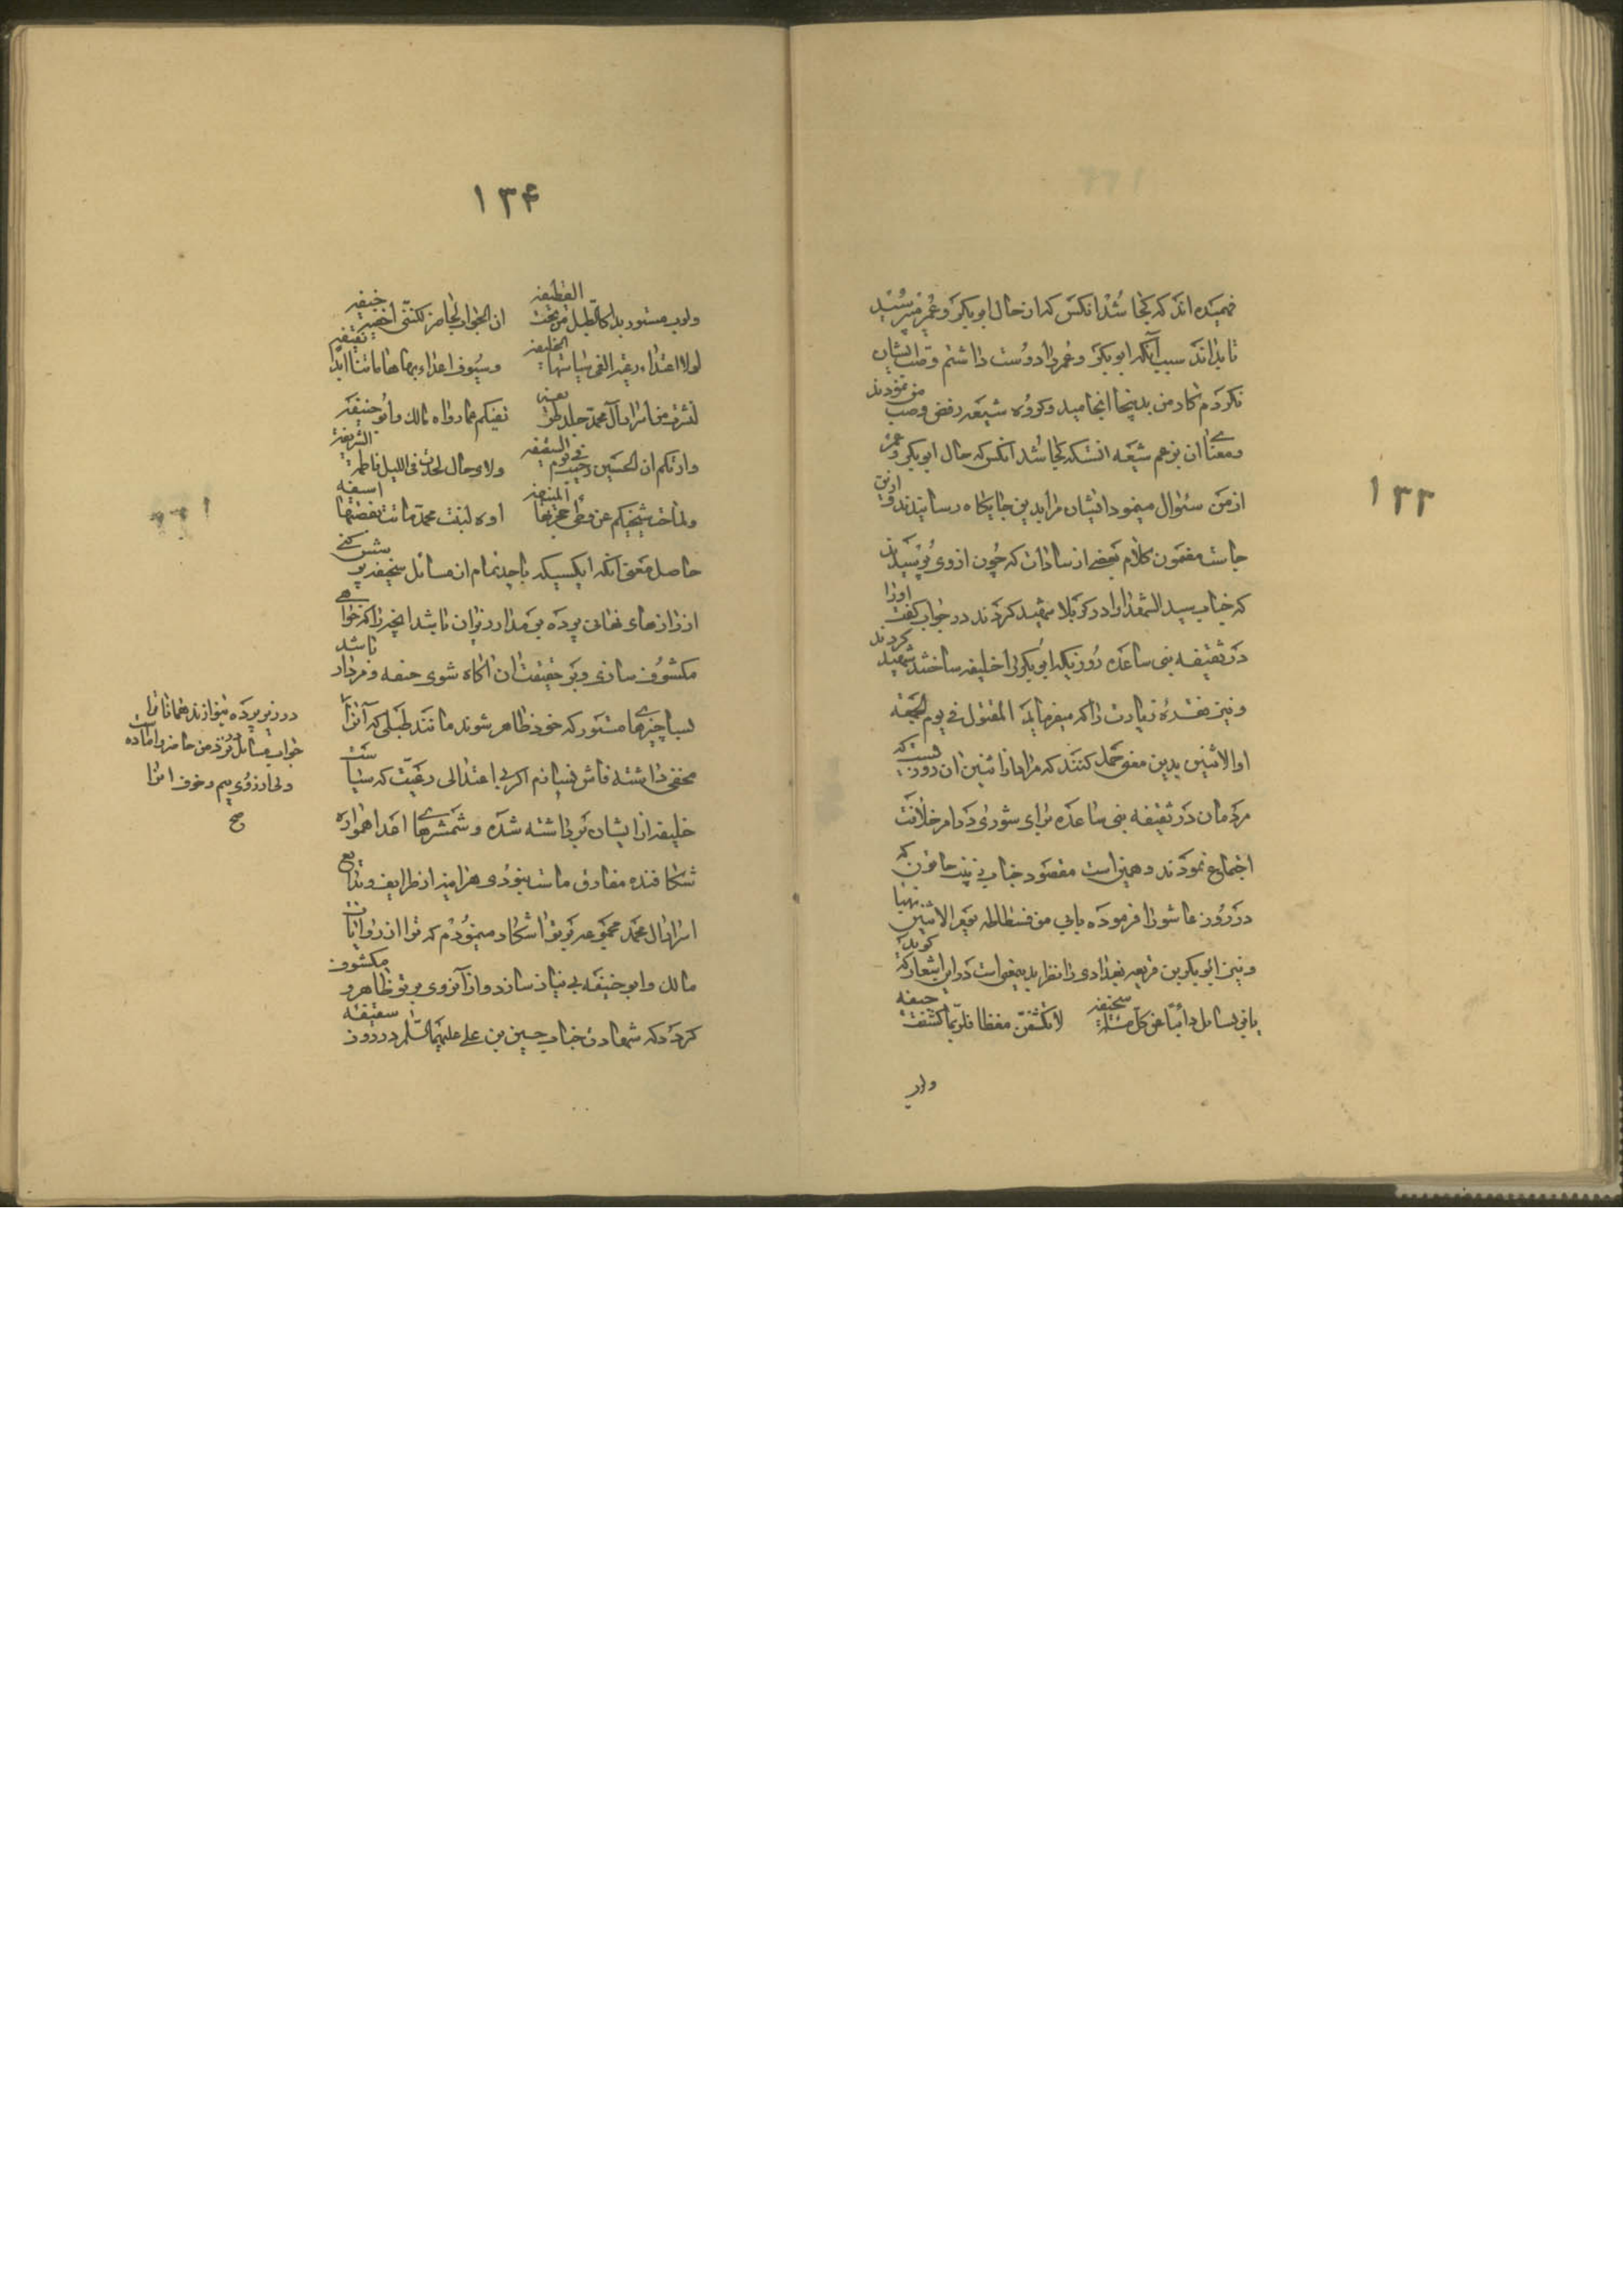 ۱۳۳
فهمیده اند که کجا شد انکس که از حال ابوبکر و عمر میپرسید
تا بداند سبب آنکه ابوبکر و عمر را دوست داشتم و طلب ایشان
نکردم کار من بدینجا انجامید و گروه شیعه رفض و نصب من نمودند
و معنی ان بزعم شیعه انستکه کجا شد انکس که حال ابوبکر و عمر
از من سئوال مینمود ایشان مرا بدین جایکاه رسانیدند و ازین
جاست مضمون کلام بعضی از سادات که چون از وی پرسیدند
که جناب سید الشهدا را در کربلا شهید کردند در جواب گفت اورا
در ثقیفه بنی ساعده روزیکه ابوبکر را خلیفه ساختند شهید کردند
و نیز فقره زیارت را که میفرماید المقتول فی یوم الجمعة
او الاثنین بدین معنی حمل کنند که مراد از اثنین ان روزیست که
مردمان در ثقیفه بنی ساعده برای شوری در امر خلافت
اجتماع نمودند و همین است مقصود جناب زینب خاتون که
در روز عاشورا فرموده بابی من فسطاطه یوم الاثنین نهبا
و نیز ابوبکر بن قریعه بغدادی را نظر بدینمعنی است در این اشعار که گوید
یا من یسائل دائبا عن کل مسئلة سخیفه لا تکشفن مغطا فلربما کشفت جیفه
ولرب
۱۳۴
ولرب مستور بدا کالطبل من تحت القطیفه ان الجواب لحاضر لکننی اخفیه خیفه
لولا اعتداء رعیة الغی سیاستها الخلیفه و سیوف اعداء بها هاماتنا ابدا نقیفه
لنشرت من اسرار آل محمد جملا طریفه تغنیکم عما رواه مالک و ابو حنیفه
و اریتکم ان الحسین اصیب فی یوم السقیفه و لای حال لحدت فی اللیل فاطمة الشریفه
و لما حمت شیخیکم عن وطی حجرتها المنیفه اوه لبنت محمد ماتت بغصتها اسیفه
حاصل معنی انکه ایکسیکه با جد تمام از مسائل سخیفه پرسش کنی
از رازهای نهانی پرده بر مدار زیرا که باشد انچه را که خواهی
مکشوف سازی و بر حقیقت ان اگاه شوی جیفه و مردار باشد
بسا چیزها مستور که خود ظاهر شوند مانند طبلی که آنرا
در زیر پرده بنوازند همانا مرا
جواب مسائل تو نزد من حاضر و اماده است
ولی از روی بیم و خوف انرا
صح
مخفی داشته فاش نسازم اگر بی اعتدالی رعیت که سیاست
خلیفه از ایشان برداشته شده و شمشیرهای اعدا همواره
شکافنده مفارق ماست نبودی هر اینه از ظرایف و بدایع
اسرار ال محمد مجموعه بر تو اشکار مینمودم که ترا از روایات
مالک و ابو حنیفه بی نیاز سازد و از انروی بر تو ظاهر و مکشوف
کردد که شهادت جناب حسین بن علی علیهما السلام در روز سقیفه